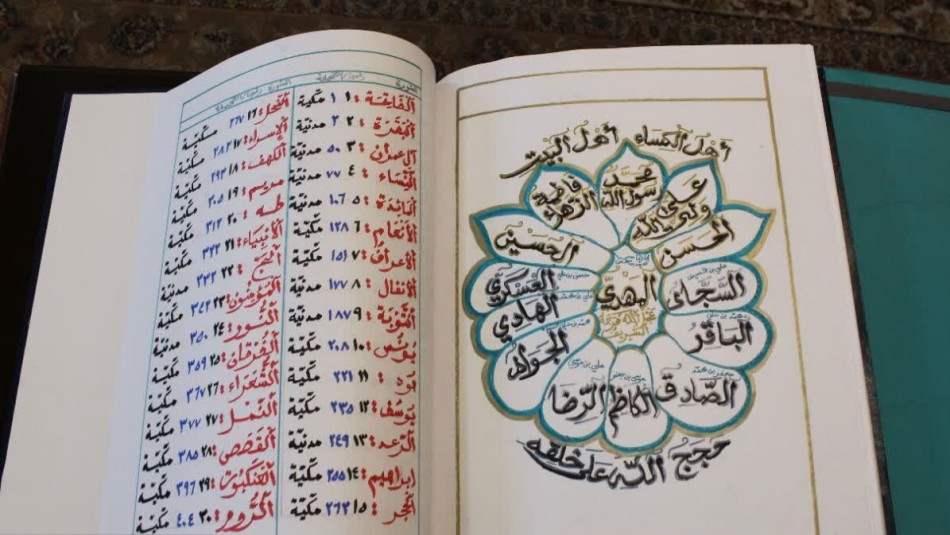 أهل الكساء أهل البيت
محمد رسول الله
علي ولي الله
فاطمة الزهراء
الحسن
الحسين
السجاد
الباقر
الصادق
الكاظم
الرضا
الجواد
الهادي
العسكري
المهدي
حجج الله على خلقه
السورة
الفاتحة: ١ ١ مكية
البقرة: ٢ ٢ مدنية
آل عمران: ٣ ٥٠ مدنية
النساء: ٤ ٧٧ مدنية
المائدة: ٥ ١٠٦ مدنية
الأنعام: ٦ ١٢٨ مكية
الأعراف: ٧ ١٥١ مكية
الأنفال: ٨ ١٧٧ مدنية
التوبة: ٩ ١٨٧ مدنية
يونس: ١٠ ٢٠٨ مكية
هود: ١١ ٢٢١ مكية
يوسف: ١٢ ٢٣٥ مكية
الرعد: ١٣ ٢٤٩ مدنية
ابراهيم: ١٤ ٢٥٥ مكية
الحجر: ١٥ ٢٦٢ مكية
النحل: ١٦ ٢٦٧ مكية
الإسراء: ١٧ ٢٨٢ مكية
الكهف: ١٨ ٢٩٣ مكية
مريم: ١٩ ٣٠٥ مكية
طه: ٢٠ ٣١٢ مكية
الأنبياء: ٢١ ٣٢٢ مكية
الحج: ٢٢ ٣٣٢ مدنية
المؤمنون: ٢٣ ٣٤٢ مكية
النور: ٢٤ ٣٥٠ مدنية
الفرقان: ٢٥ ٣٥٩ مكية
الشعراء: ٢٦ ٣٦٧ مكية
النمل: ٢٧ ٣٧٧ مكية
القصص: ٢٨ ٣٨٥ مكية
العنكبوت: ٢٩ ٣٩٦ مكية
الروم: ٣٠ ٤٠٤ مكية